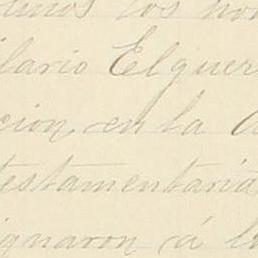 los
ilario Elguer
cion, en la
testamentaria
ignaron á l